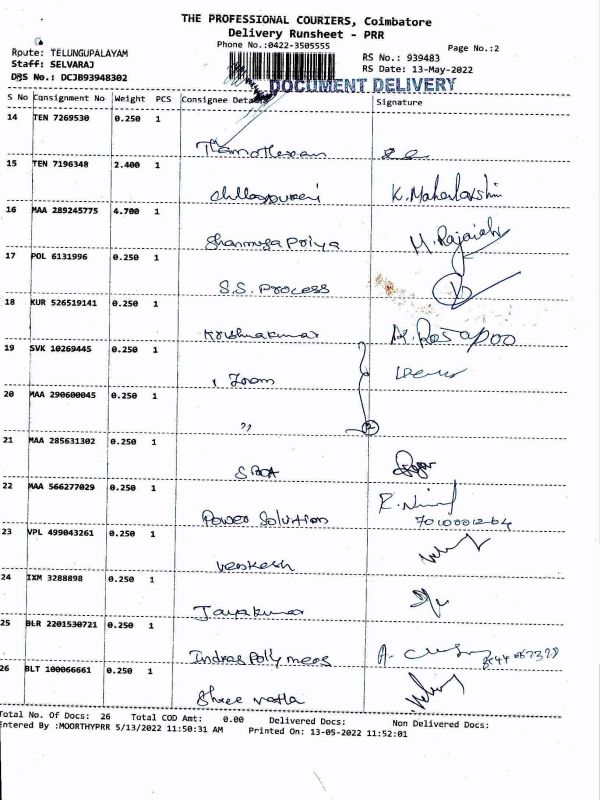 THE PROFESSIONAL COURIERS, Coimbatore
Delivery Runsheet - PRR
Phone No.:0422-3505555
Page No.:2
Route: TELUNGUPALAYAM
Staff: SELVARAJ
DRS No.: DCJB93948302
RS No.: 939483
RS Date: 13-May-2022
DOCUMENT DELIVERY
S No Consignment No Weight PCS Consignee Details Signature
14 TEN 7269530 0.250 1
15 TEN 7196348 2.400 1
K. Mahalakshmi
16 MAA 289245775 4.700 1
Shanmuga Priya M. Rajaiah
17 POL 6131996 0.250 1
S.S. Process
18 KUR 526519141 0.250 1
Krishnakumar
19 SVK 10269445 0.250 1
Zoom
20 MAA 290600045 0.250 1
"
21 MAA 285631302 0.250 1
22 MAA 566277029 0.250 1
Power Solution
23 VPL 499043261 0.250 1
Venkesh
24 IXM 3288898 0.250 1
Jayakumar
25 BLR 2201530721 0.250 1
Indras Polymers
26 BLT 100066661 0.250 1
Shree
Total No. Of Docs: 26 Total COD Amt: 0.00 Delivered Docs: Non Delivered Docs:
Entered By :MOORTHYPRR 5/13/2022 11:50:31 AM Printed On: 13-05-2022 11:52:01